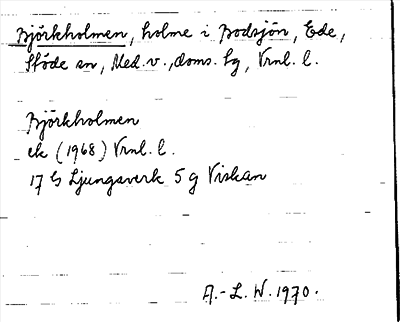 Björkholmen, holme i Bodsjön, Ede,
Stöde sn, Med. v., doms. lg, Vrnl. l.
Björkholmen
ek (1968) Vrnl. l.
17 G Ljungaverk 5 g Viskan
A.-L. W. 1970.